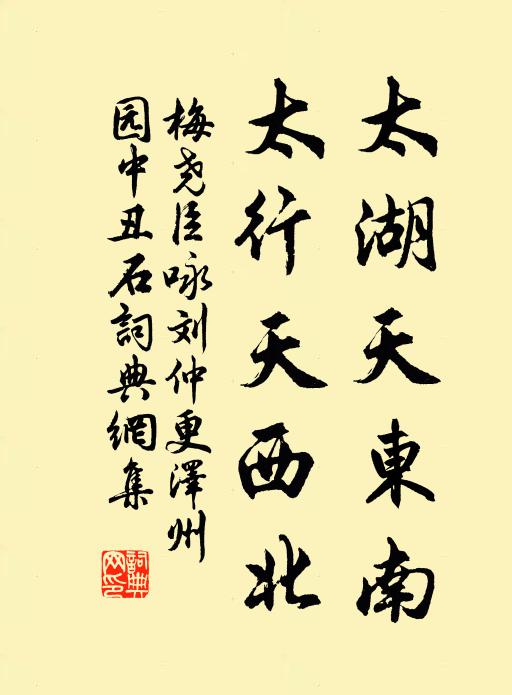 太湖天東南
太行天西北
梅尧臣咏刘仲更澤州
园中丑石詞典網集
詞典
网印